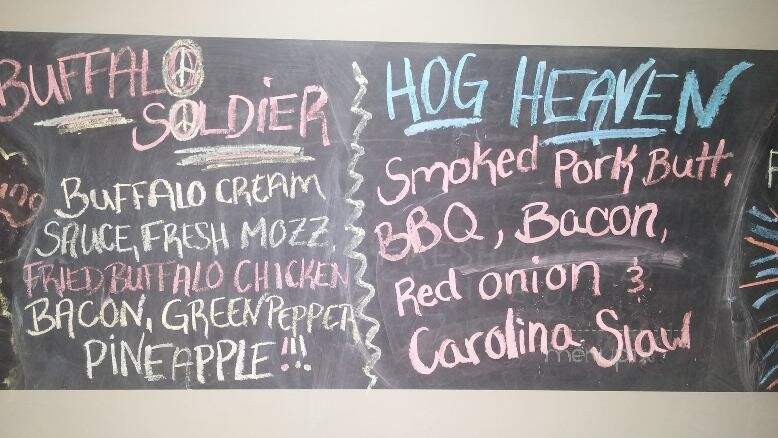 BUFFALO
SOLDIER
BUFFALO CREAM
SAUCE, FRESH MOZZ,
FRIED BUFFALO CHICKEN
BACON, GREEN PEPPER
PINEAPPLE!!!
HOG HEAVEN
Smoked Pork Butt,
BBQ, Bacon,
Red onion &
Carolina Slaw